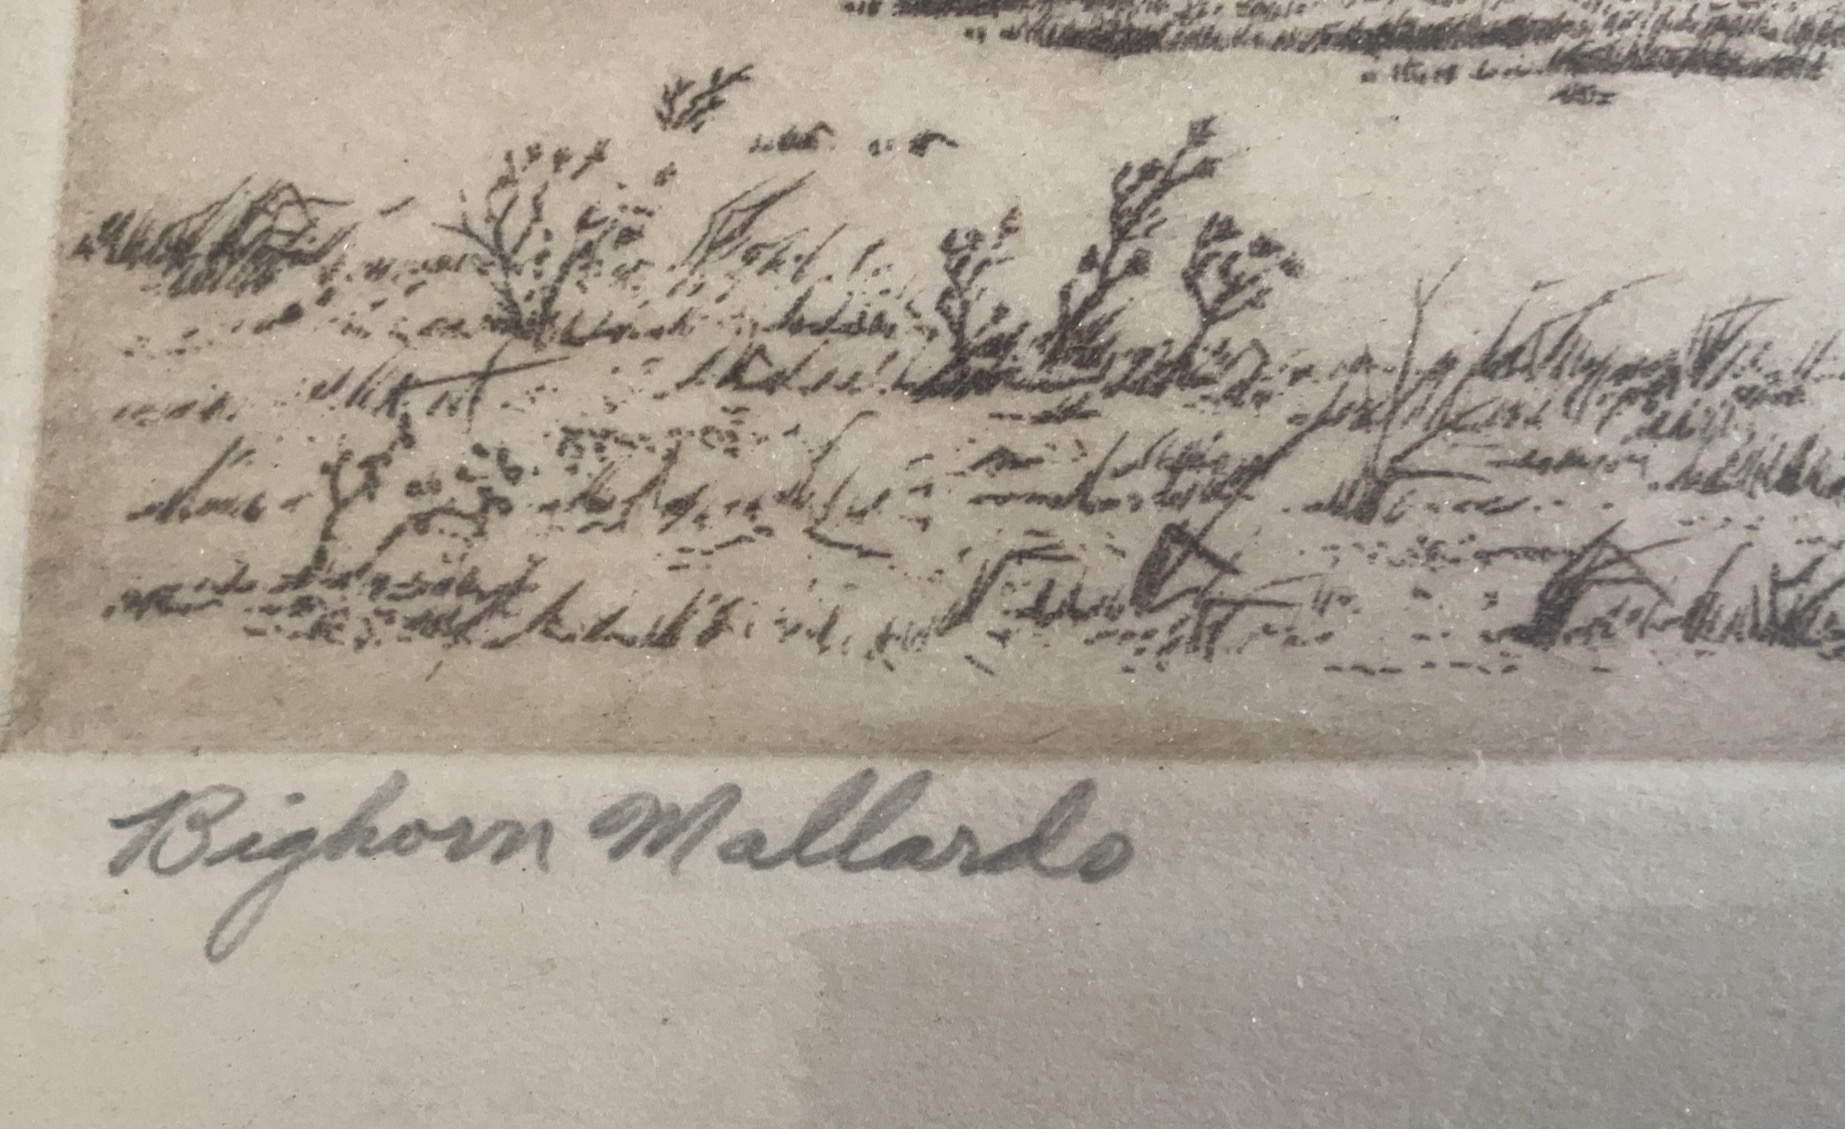 Bighorn Mallards